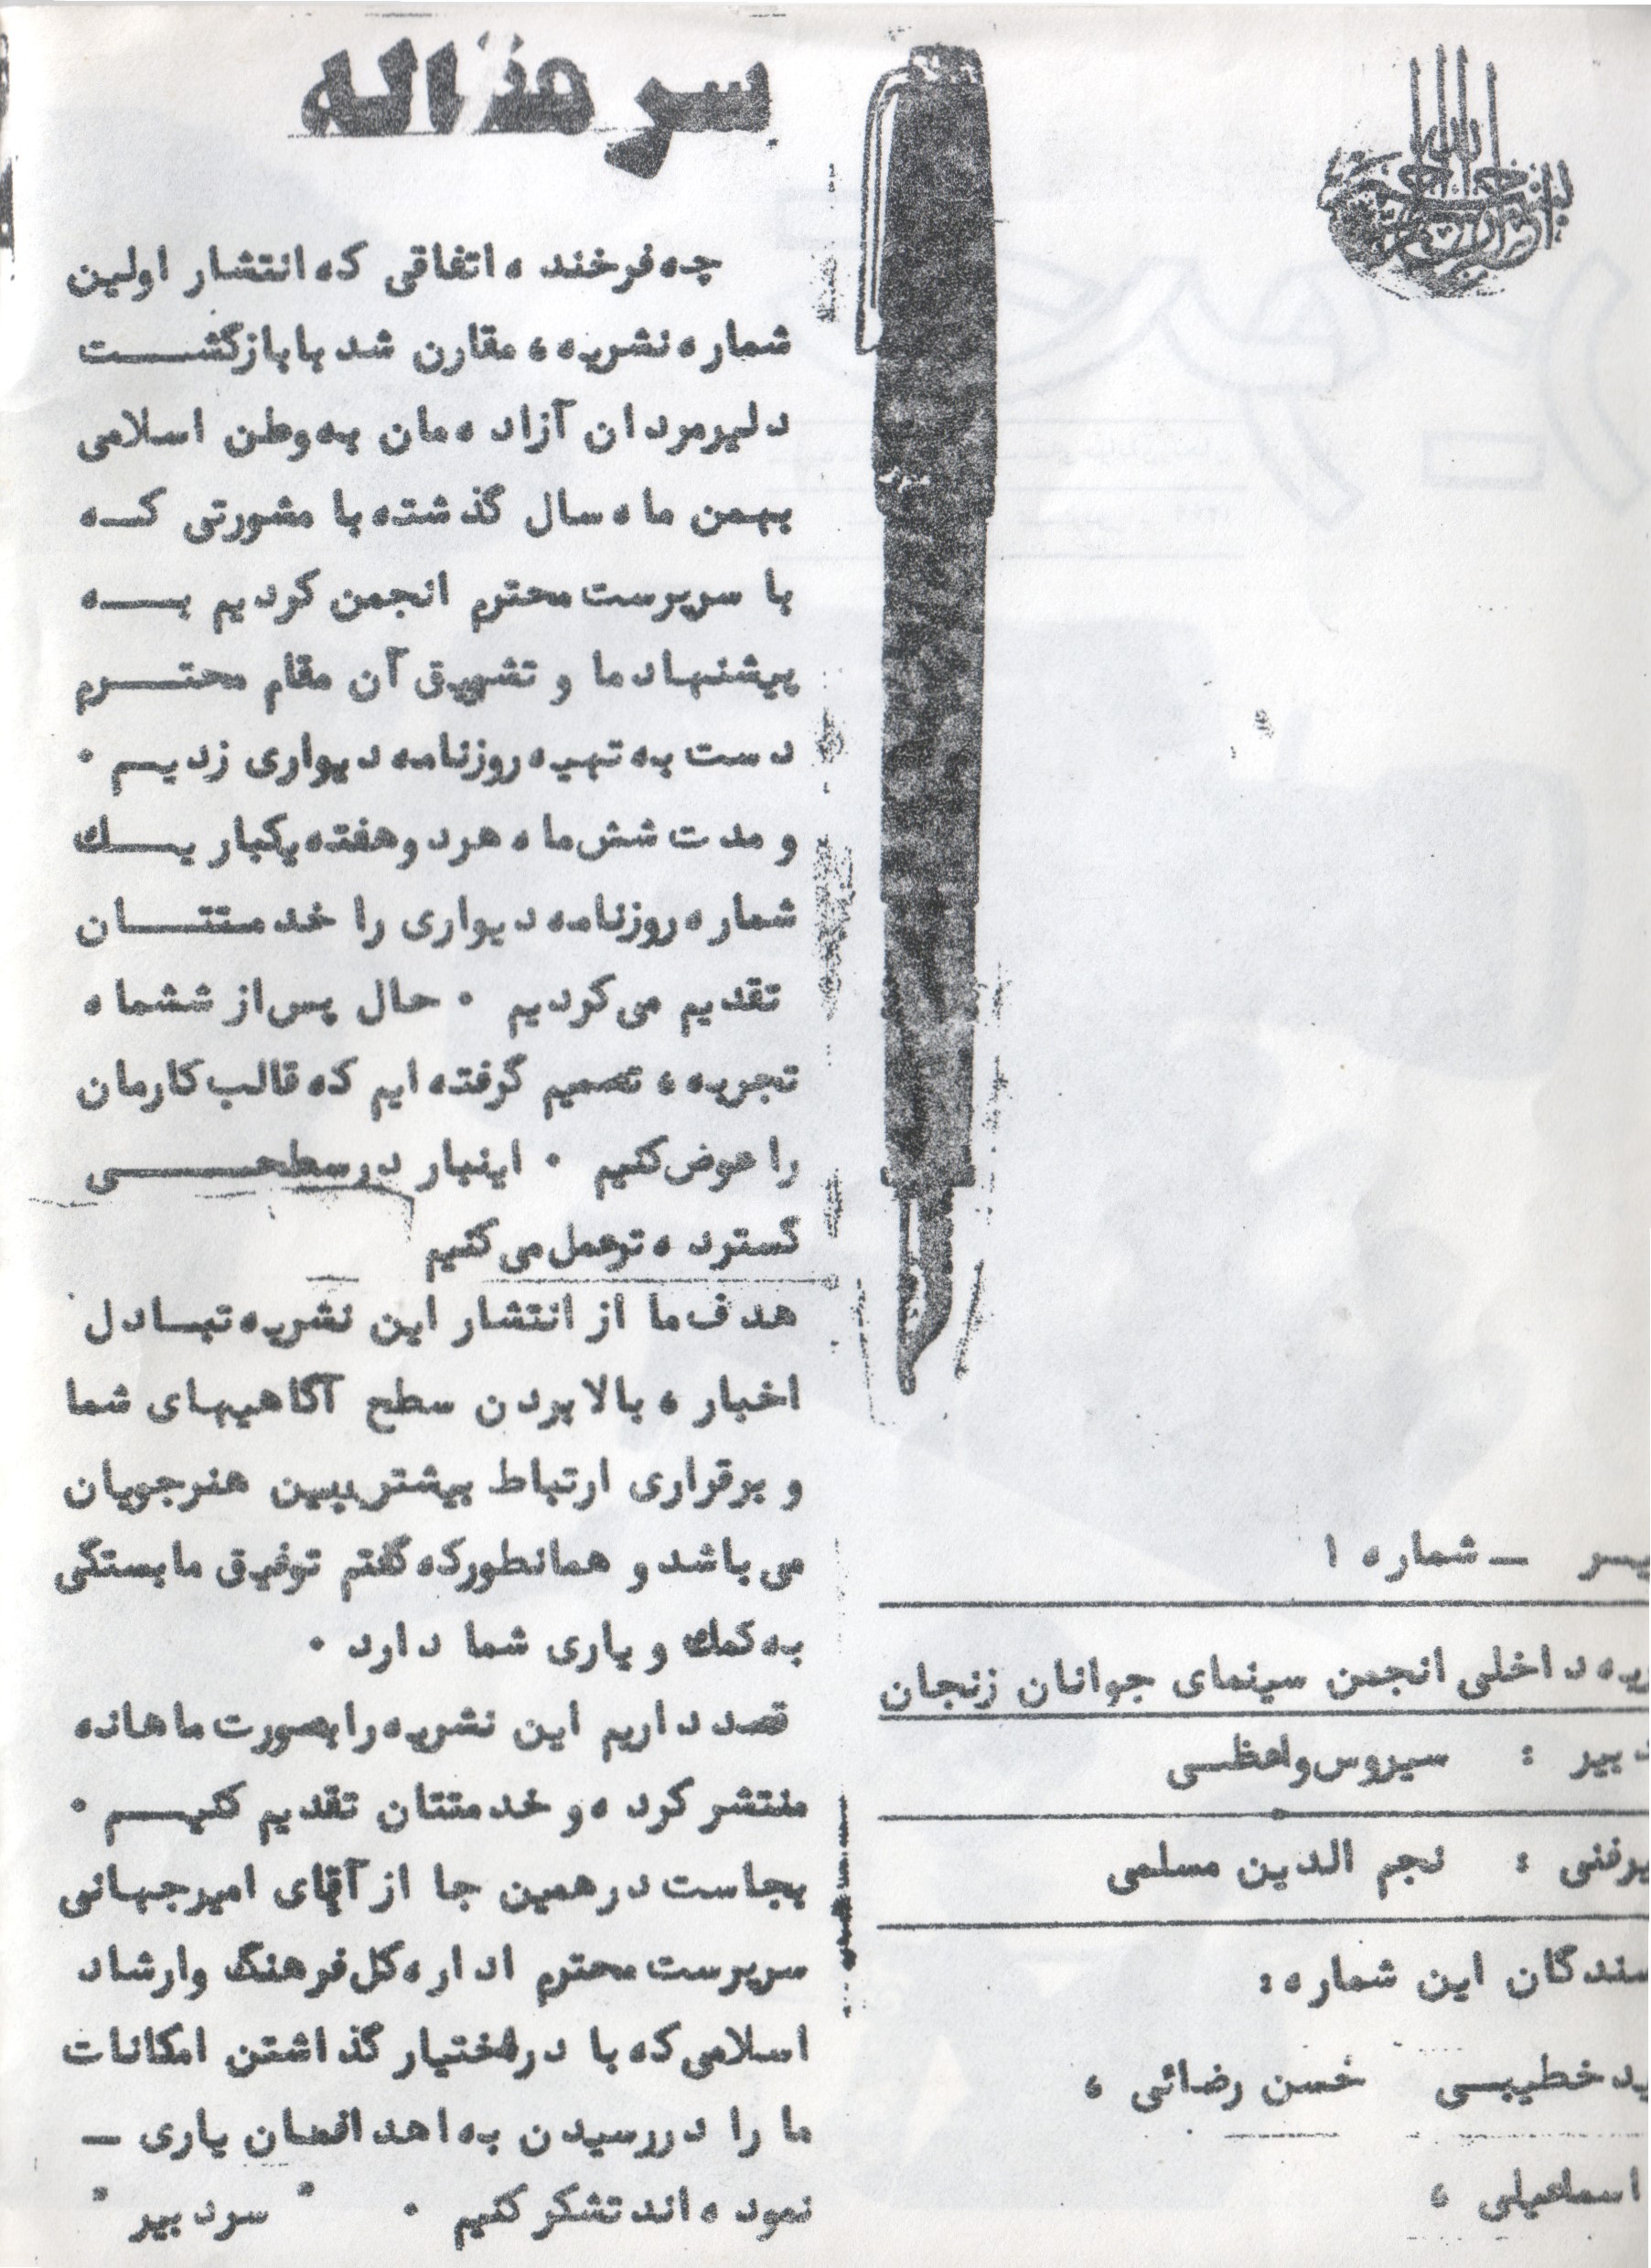 سرمقاله
چه فرخنده اتفاقی که انتشار اولین
شماره نشریه ، مقارن شد با بازگشت
دلیرمردان آزاده مان به وطن اسلامی
بهمن ماه سال گذشته با مشورتی که
با سرپرست محترم انجمن کردیم به
پیشنهاد ما و تشویق آن مقام محترم
دست به تهیه روزنامه دیواری زدیم .
و مدت شش ماه هر دو هفته یکبار یک
شماره روزنامه دیواری را خدمتتان
تقدیم می کردیم . حال پس از ششماه
تجربه ، تصمیم گرفته ایم که قالب کارمان
را عوض کنیم . اینبار در سطحی
گسترده تر عمل می کنیم
هدف ما از انتشار این نشریه تبادل
اخبار ، بالا بردن سطح آگاهیهای شما
و برقراری ارتباط بیشتر بین هنرجویان
می باشد و همانطور که گفتم توفیق ما بستگی
به کمک و یاری شما دارد .
قصد داریم این نشریه را بصورت ماهانه
منتشر کرده و خدمتتان تقدیم کنیم .
بجاست در همین جا از آقای امیرجهانی
سرپرست محترم اداره کل فرهنگ و ارشاد
اسلامی که با در اختیار گذاشتن امکانات
ما را در رسیدن به اهدافمان یاری -
نموده اند تشکر کنیم . " سردبیر "
بسم الله الرحمن الرحیم
ـ شماره ۱
داخلی انجمن سینمای جوانان زنجان
دبیر : سیروس واعظی
فنی : نجم الدین مسلمی
سندگان این شماره :
خطیبی حسن رضائی ،
اسماعیلی ،